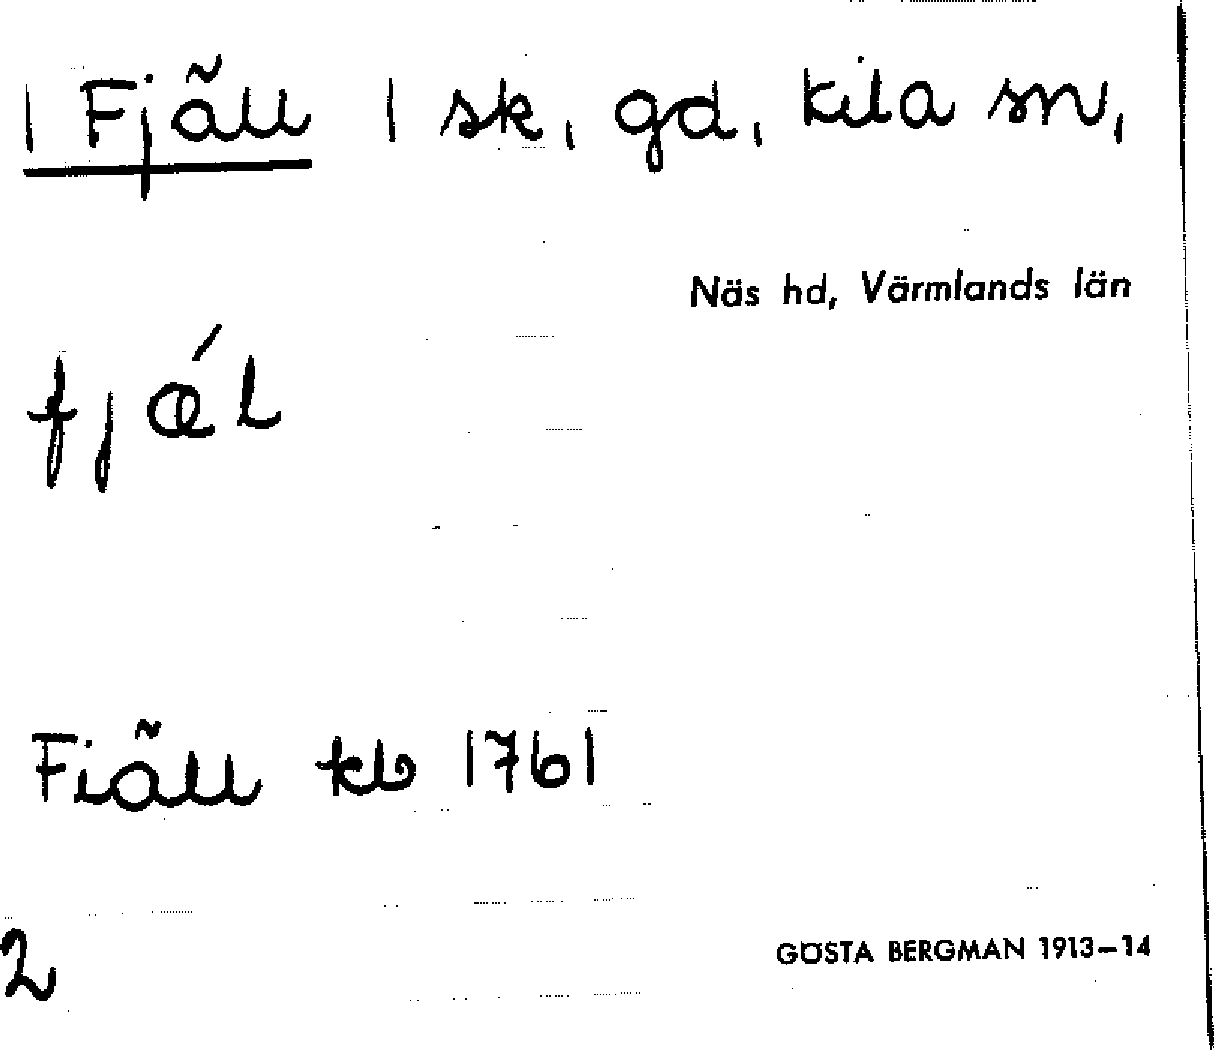 1 Fjäll 1 sk, gd, Kila sn,
Näs hd, Värmlands län
fjǽl
Fiäll kb 1761
2
GÖSTA BERGMAN 1913–14